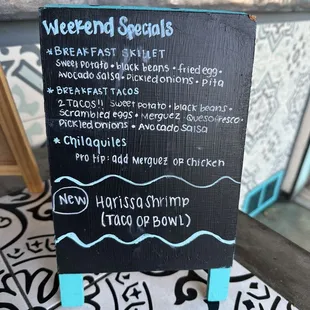 Weekend Specials
*BREAKFAST SKILLET
Sweet Potato • black beans • fried egg •
Avocado salsa • Pickled onions • Pita
*BREAKFAST TACOS
2 TACOS!! Sweet potato • black beans •
Scrambled eggs • Merguez • Queso fresco •
Pickled onions • Avocado Salsa
*Chilaquiles
Pro tip: add Merguez or Chicken
NEW
Harissa Shrimp
(TACO OR BOWL)